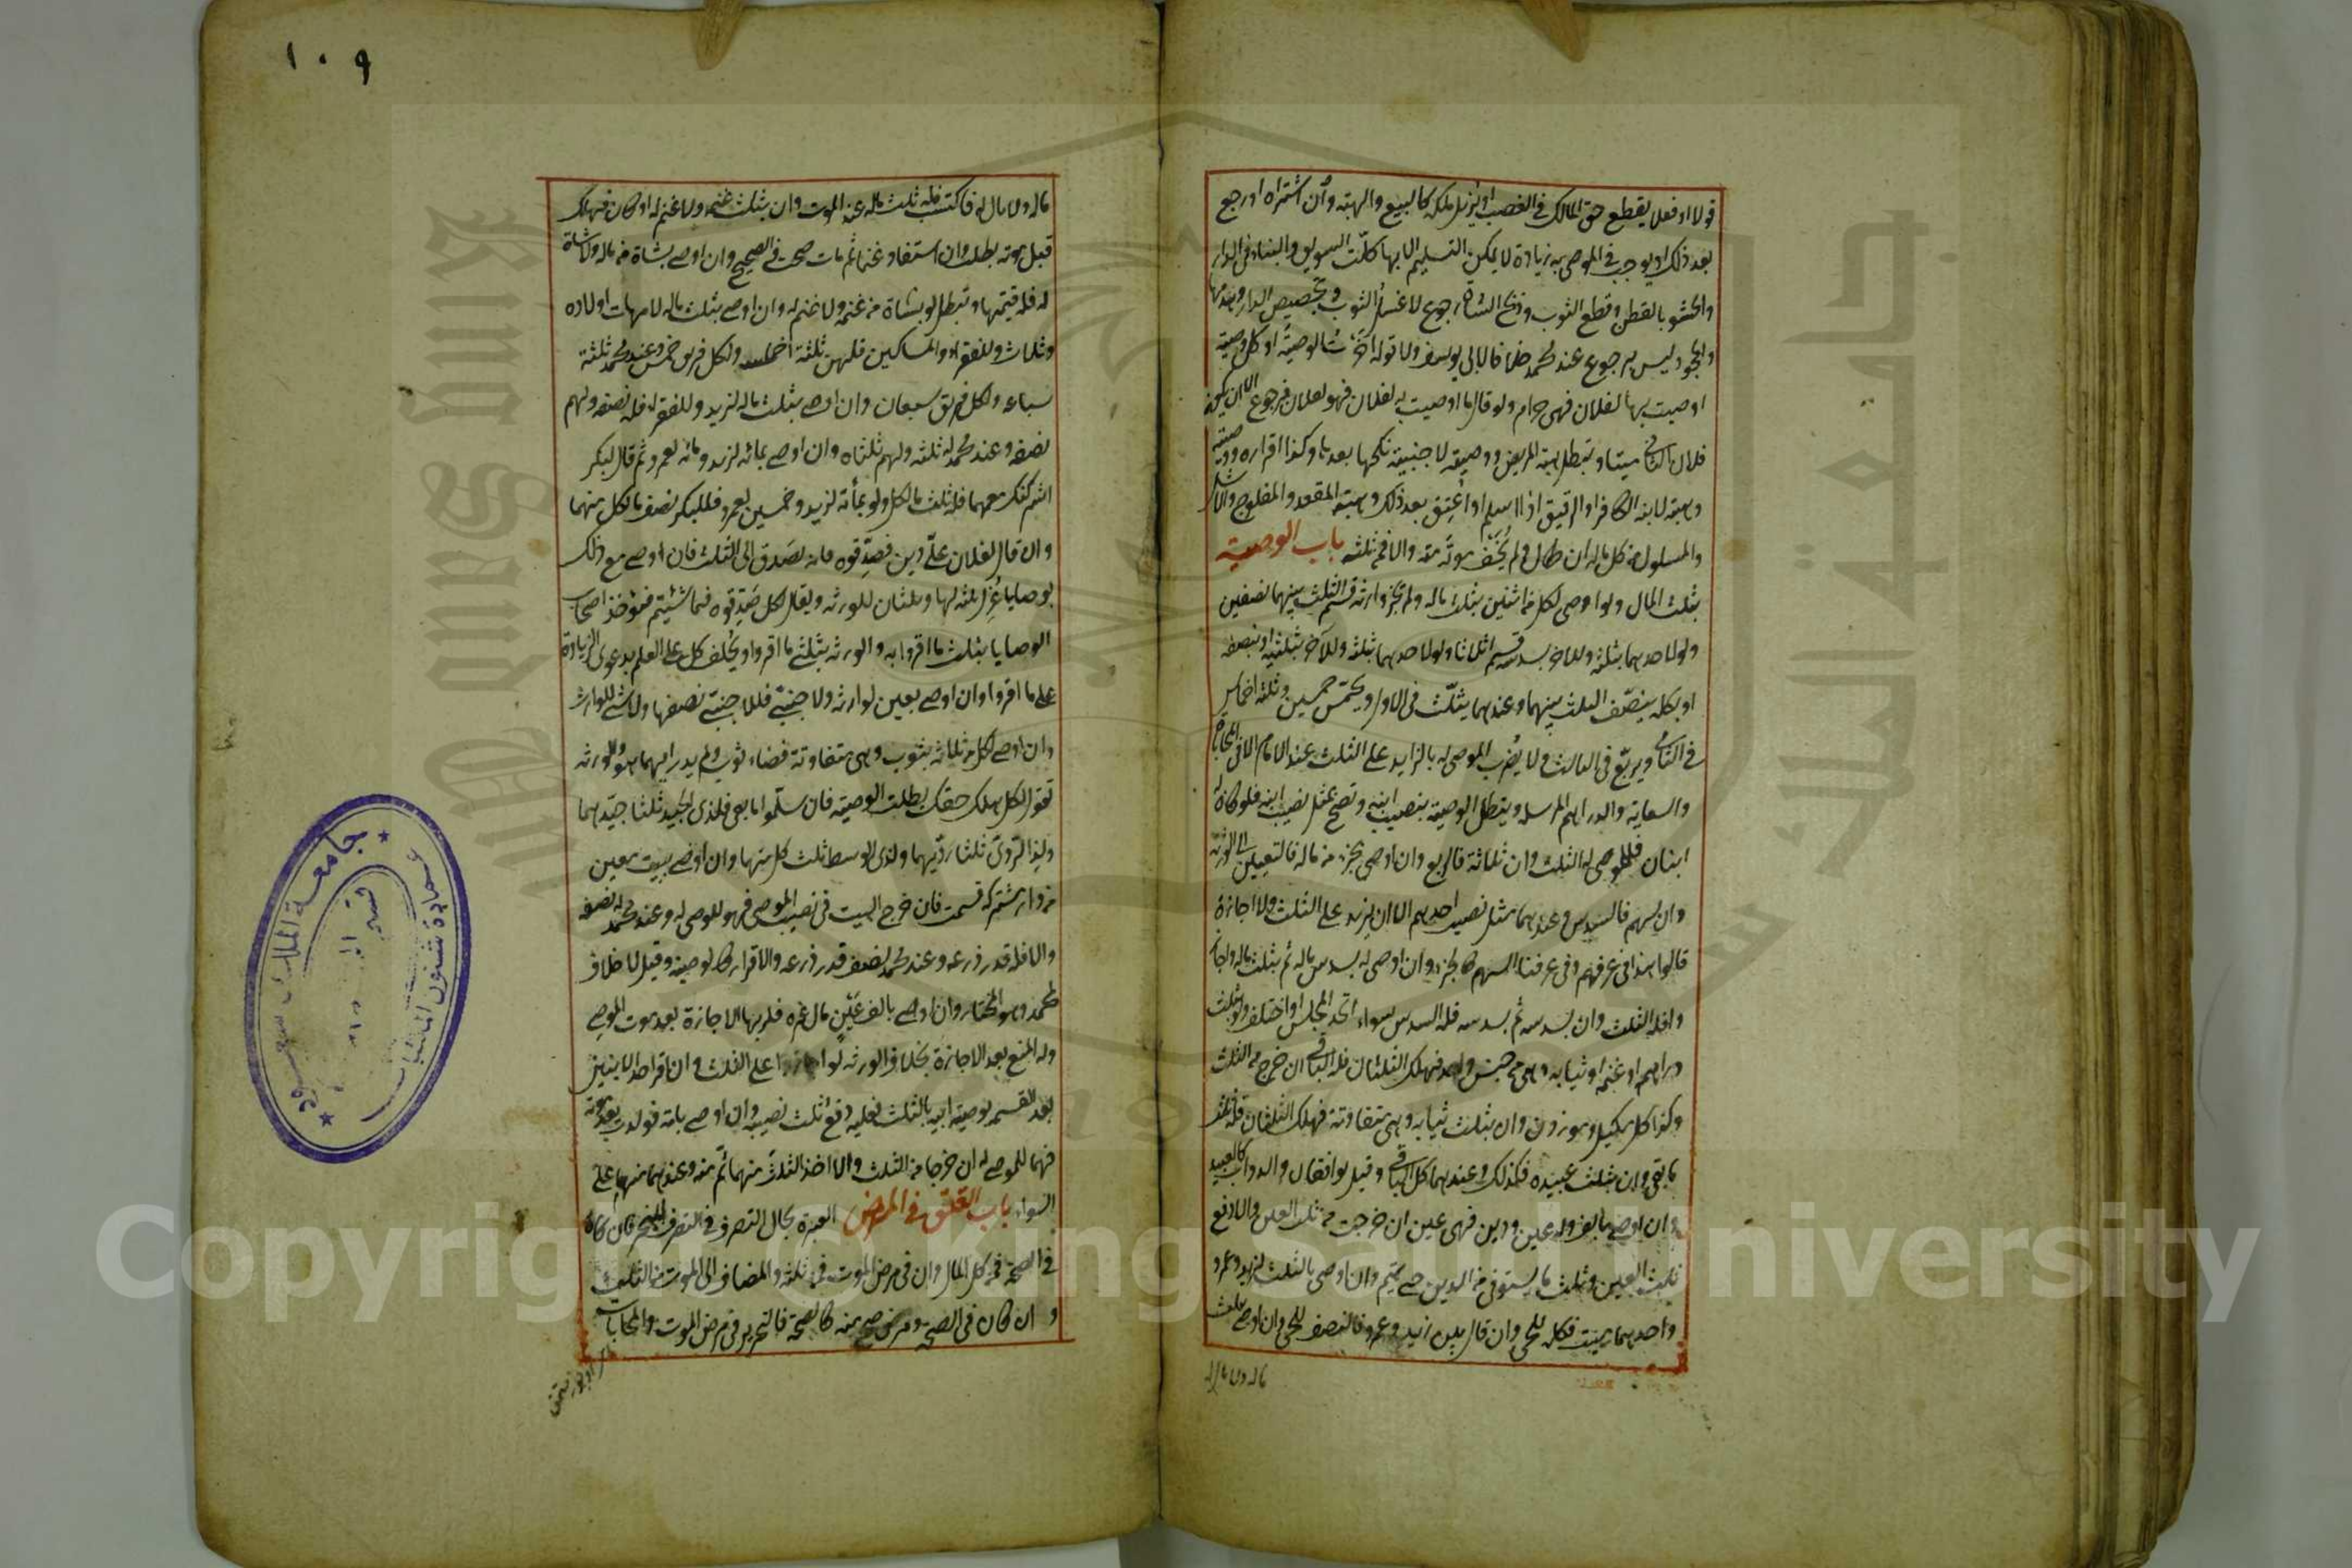 قولا او فعلا يقطع حق المالك في الغصب او يزيل ملكه كالبيع والهبة وان اشتراه او رجع
بعد ذلك او يوجب في الموصى به زيادة لا يمكن التسليم الا بها كلت السويق والبناء في الدار
والحشو بالقطن وقطع الثوب وذبح الشاة رجوع لا غسل الثوب وتجصيص الدار وهدمها
والجحود ليس برجوع عند محمد خلافا لابي يوسف ولا قوله اخرت الوصية او كل وصية
اوصيت بها لفلان فهي حرام ولو قال ما اوصيت به لفلان فهو لفلان فرجوع الا ان يكون
فلان الثاني ميتا وتبطل هبة المريض ووصيته لاجنبية نكحها بعدها وكذا اقراره ووصيته
وهبته لابنه الكافر او الرقيق اذا اسلم او اعتق بعد ذلك وهبة المقعد والمفلوج والاشل
والمسلول من كل ماله ان طال ولم يخف موته منه والا فمن ثلثه باب الوصية
بثلث المال ولو اوصى لكل من اثنين بثلث ماله ولم تجز وارثه قسم الثلث بينهما نصفين
ولو لاحدهما بثلثه وللاخر بسدسه قسم اثلاثا ولو لاحدهما بثلثه وللآخر بثلثيه او بنصفه
او بكله ينصف الثلث بينهما وعندهما يثلث في الاول ويخمس خمسين وثلثه اخماس
في الثاني ويربع في الثالث ولا يضرب الموصى له بالزايد على الثلث عند الامام الا في المحاباة
والسعاية والدراهم المرسلة ويبطل الوصية بنصيب ابنه وتصح بمثل نصيب ابنه فلو كان له
ابنان فللموصى له الثلث وان ثلاثة فالربع وان اوصى بجزء من ماله فالتعيين الى الورثة
وان بسهم فالسدس وعندهما بمثل نصيب احدهم الا ان يزيد على الثلث ولا اجازة
قالوا هذا في عرفهم وفي عرفنا السهم كالجزء وان اوصى له بسدس ماله ثم بثلث ماله واجازوا
فله الثلث وان بسدسه ثم بسدسه فله السدس سواء اتحد المجلس او اختلف ولو بثلث
دراهمه او غنمه او ثيابه وهي من جنس واحد فهلك الثلثان فله الباقي ان خرج من الثلث
وكذا كل مكيل وموزون وان بثلث ثيابه وهي متفاوتة فهلك الثلثان فله ثلث
ما بقي وان بثلث عبيده فكذلك وعندهما كل الباقي وقيل يوافقان والدواب كالعبيد
وان اوصى بالف وله عين ودين فهي عين ان خرجت من ثلث العين والا دفع
ثلث العين وثلث ما يستوفى من الدين حتى يتم وان اوصى بالثلث لزيد وعمرو
واحدهما ميت فكله للحي وان قال بين زيد وعمرو فالنصف للحي وان اوصى بثلث
ماله ولا مال له
١٠٩
ماله ولا مال له فاكتسب فله ثلث ماله عند الموت وان بثلث غنمه ولا غنم له او كان فهلك
قبل موته بطلت وان استفاد غنما ثم مات صحت في الصحيح وان اوصى بشاة من ماله ولا شاة
له فله قيمتها وتبطل لو بشاة من غنمه ولا غنم له وان اوصى بثلث ماله لامهات اولاده
وثلاث وللفقراء والمساكين فلهن ثلثة اخماس ولكل فريق خمس وعند محمد ثلثة
اسباعه ولكل فريق سبعان وان اوصى بثلث ماله لزيد وللفقراء فله نصفه ولهم
نصفه وعند محمد له ثلثه ولهم ثلثاه وان اوصى بمائة لزيد ومائة لعمرو ثم قال لبكر
اشركتك معهما فله ثلث ما لكل ولو بمأة لزيد وخمسين لعمرو فللبكر نصف ما لكل منهما
وان قال لفلان علي دين فصدقوه فانه يصدق الى الثلث فان اوصى مع ذلك
بوصايا عزل ثلثه لها وثلثان للورثه ويقال لكل صدقوه فيما شئتم فيؤخذ اصحاب
الوصايا بثلث ما اقروا به والورثه بثلثي ما اقروا ويحلف كل على العلم بدعوى الزيادة
على ما اقروا وان اوصى بعين لوارثه ولاجنبي فللاجنبي نصفها ولا شئ للوارث
وان اوصى لكل من ثلاثه بثوب وهي متفاوتة فضاع ثوب ولم يدر ايهما هو والورثه
تقول لكل هلك حقك بطلت الوصية فان سلموا ما بقي فلذي الجيد ثلثا جيدهما
ولذي الردي ثلثا رديهما ولذي الوسط ثلث كل منهما وان اوصى ببيت معين
من دار مشتركه قسمت فان خرج البيت في نصيب الموصي فهو للموصى له وعند محمد له نصفه
والا فله قدر ذرعه وعند محمد نصف قدر ذرعه والاقرار كالوصية وقيل لا خلاف
لمحمد وهو المختار وان اوصى بالف عين من مال غيره فلربها الاجازة بعد موت الموصي
وله المنع بعد الاجازة بخلاف الورثه لو اجازوا ما على الثلث وان اقر احد الابنين
بعد القسم بوصية ابيه بالثلث فعليه دفع ثلث نصيبه وان اوصى بامة فولدت بعد موته
فهما للموصى له ان خرجا من الثلث والا اخذ الثلث منها ثم منه وعندهما منهما على
السواء باب العتق في المرض العبرة بحال التصرف في التصرف المنجز فان كان
في الصحة فمن كل المال وان في مرض الموت فمن ثلثه والمضاف الى الموت من الثلث
وان كان في الصحة ومرض صح منه كالصحة فالتحرير في مرض الموت والمحاباة
جامعة الملك سعود
عمادة شئون المكتبات
قسم
جامعة الملك سعود
King Saud University
Copyright © King Saud University